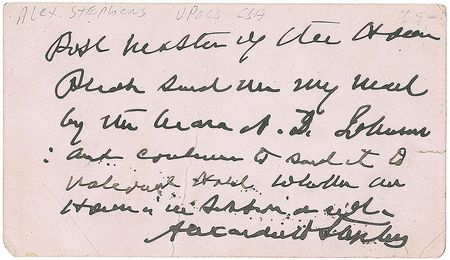 Alex. Stephens V Pres CSA
Post Master of the House
Please send me my mail
by the bearer A. D. Johnson
and continue to send it to
National Hotel whether the
House is in session or not.
Alexander H Stephens